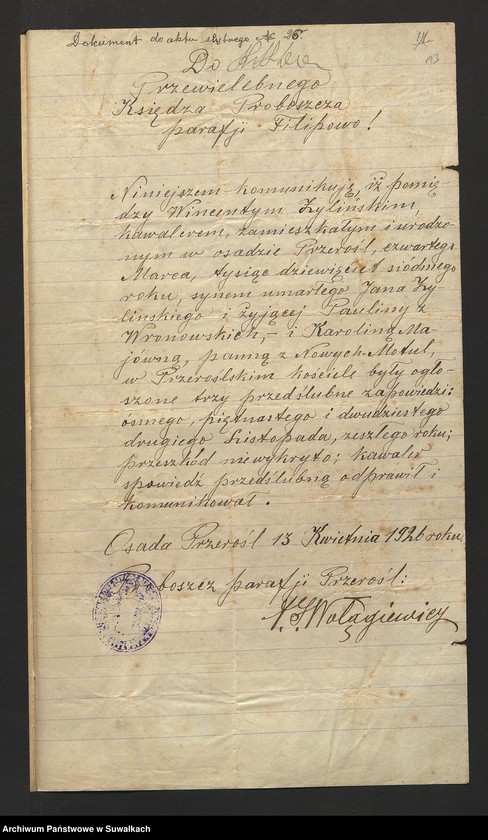 Dokument do aktu ślubnego № 26
13
Do
Przewielebnego
Księdza Proboszcza
parafji Filipowo!
Niniejszem komunikuję, iż pomię-
dzy Wincentym Żylińskim,
kawalerem, zamieszkałym i urodzo-
nym w osadzie Przerośl, czwartego
Marca, tysiąc dziewięćset siódmego
roku, synem umarłego Jana Ży-
lińskiego i żyjącej Pauliny z
Wronowskich, – i Karoliną Ma-
jówną, panną z Nowych-Motul,
w Przeroślskim kościele były ogło-
szone trzy przedślubne zapowiedzi:
ósmego, piętnastego i dwudziestego
drugiego Listopada, zeszłego roku;
przeszkód niewykryto; kawaler
spowiedź przedślubną odprawił i
komunikował.
Osada Przerośl 13 Kwietnia 1926 roku
Proboszcz parafji Przerośl:
Wołągiewicz
Archiwum Państwowe w Suwałkach